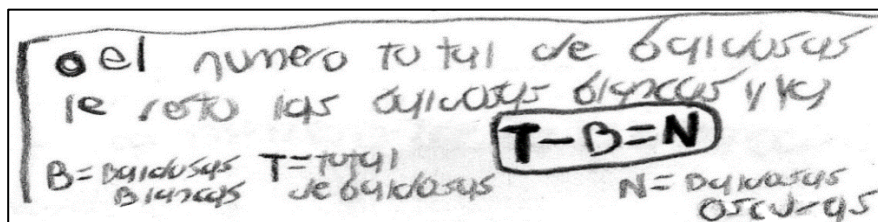 el numero total de baldosas
le resto las baldosas blancas y ya
T-B=N
B=Baldosas Blancas
T=total de baldosas
N=Baldosas oscuras